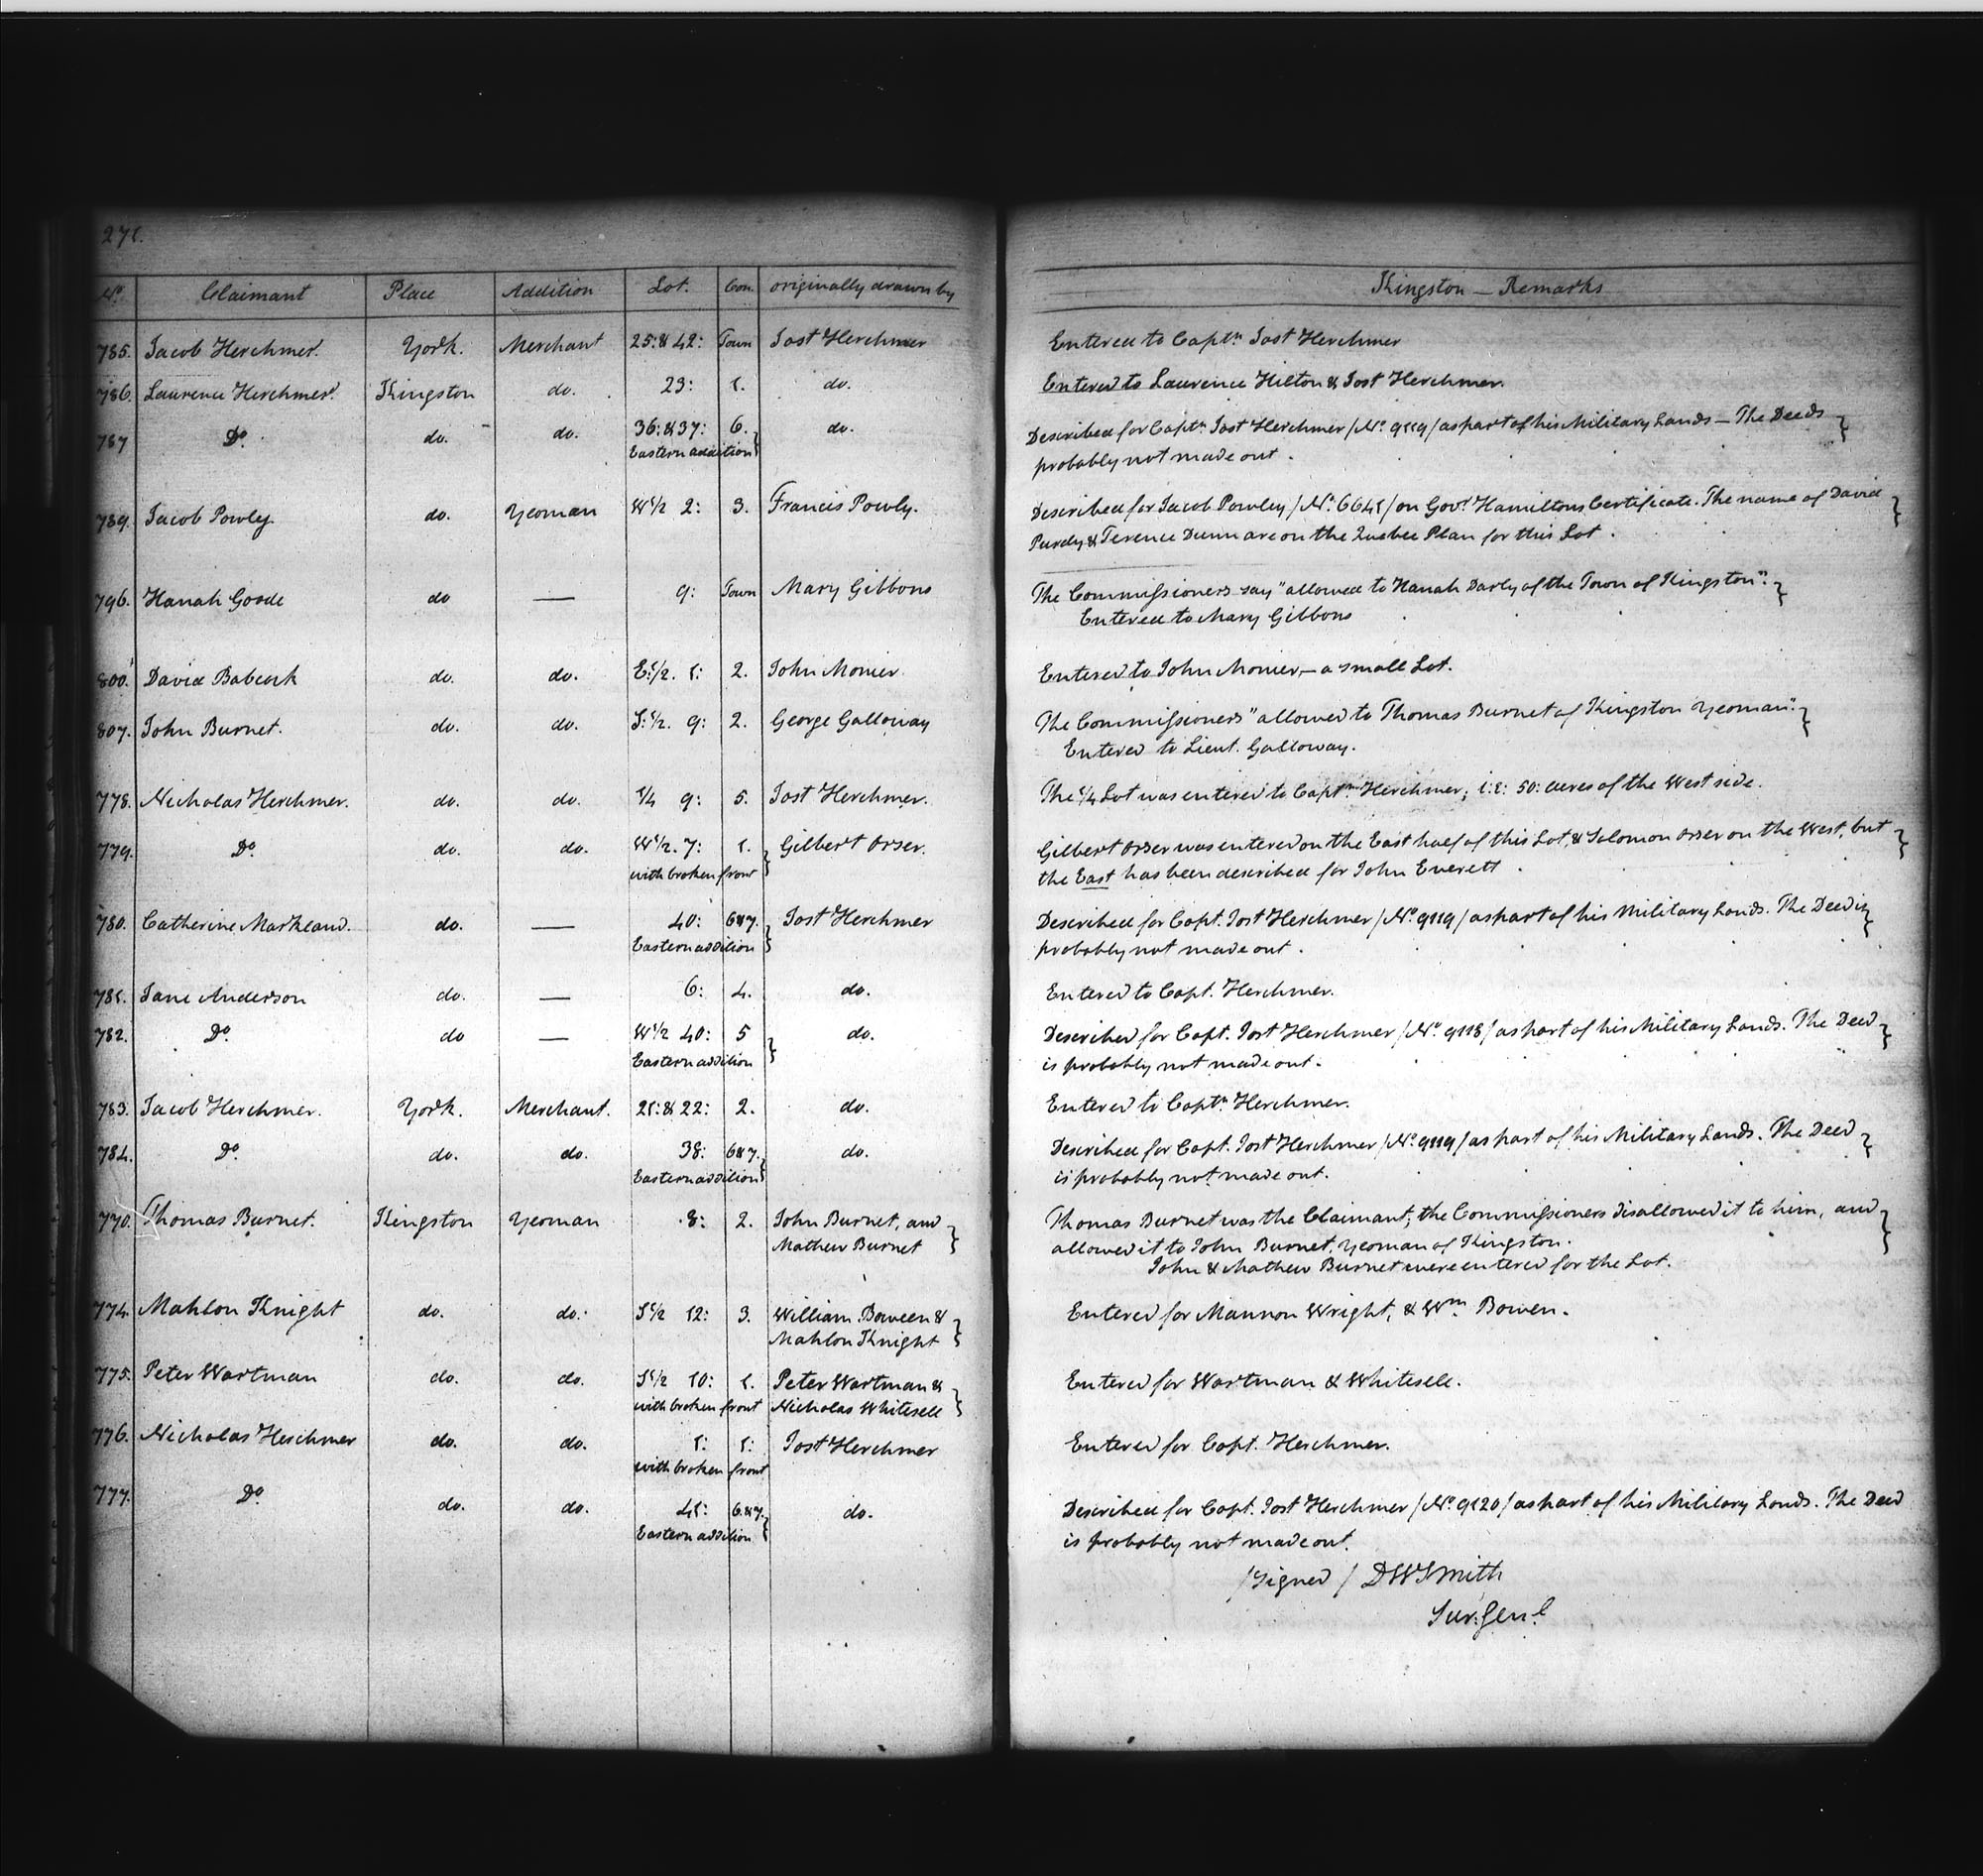 271.
No. Claimant Place Addition Lot. Con. originally drawn by Kingston — Remarks
785. Jacob Herchmer. York. Merchant 25: & 42: Town Jost Herchmer Entered to Captn. Jost Herchmer
786. Laurence Herchmer. Kingston do. 23: 1. do. Entered to Laurence Hilton & Jost Herchmer.
787 Do. do. do. 36: & 37: 6. do. Described for Captn. Jost Herchmer /No. 9119/ as part of his Military Lands — The Deeds
Eastern addition probably not made out.
789. Jacob Powly. do. Yeoman W1/2 2: 3. Francis Powly. Described for Jacob Powley /No. 6641/ on Govr. Hamiltons Certificate. The name of David
Purdy & Terence Dunn are on the Quebec Plan for this Lot.
796. Hanah Goode do — 9: Town Mary Gibbons The Commissioners say "allowed to Hanah Darly of the Town of Kingston".
Entered to Mary Gibbons
800. David Babcock do. do. E:1/2. 1: 2. John Monier. Entered to John Monier, — a small Lot.
807. John Burnet. do. do. S:1/2. 9: 2. George Galloway The Commissioners "allowed to Thomas Burnet of Kingston Yeoman".
Entered to Lieut. Galloway.
778. Nicholas Herchmer. do. do. 1/4 9: 5. Jost Herchmer. The 1/4 Lot was entered to Captn. Herchmer; i:e: 50: acres of the West side.
779. Do. do. do. W1/2. 7: 1. Gilbert Orser. Gilbert Orser was entered on the East half of this Lot, & Solomon Orser on the West, but
with broken front the East has been described for John Everett.
780. Catherine Markland. do. — 40: 6&7. Jost Herchmer Described for Capt. Jost Herchmer /No. 9119/ as part of his Military Lands. The Deed is
Eastern addition probably not made out.
781. Jane Anderson do. — 6: 4. do. Entered to Capt. Herchmer.
782. Do. do — W1/2 40: 5 do. Described for Capt. Jost Herchmer /No. 9118/ as part of his Military Lands. The Deed
Eastern addition is probably not made out.
783. Jacob Herchmer. York. Merchant. 21: & 22: 2. do. Entered to Captn. Herchmer.
784. Do. do. do. 38: 6&7. do. Described for Capt. Jost Herchmer /No. 9119/ as part of his Military Lands. The Deed
Eastern addition is probably not made out.
770. Thomas Burnet. Kingston Yeoman 8: 2. John Burnet, and Thomas Burnet was the Claimant; the Commissioners disallowed it to him, and
Mathew Burnet allowed it to John Burnet, Yeoman of Kingston.
John & Mathew Burnet were entered for the Lot.
774. Mahlon Knight do. do. S1/2 12: 3. William Boween & Entered for Mannon Wright, & Wm. Bowen.
Mahlon Knight
775. Peter Wartman do. do. S1/2 10: 1. Peter Wartman & Entered for Wartman & Whitsell.
with broken front Nicholas Whitesell
776. Nicholas Herchmer do. do. 1: 1: Jost Herchmer Entered for Capt. Herchmer.
with broken front
777. Do. do. do. 41: 6&7. do. Described for Capt. Jost Herchmer /No. 9120/ as part of his Military Lands. The Deed
Eastern addition is probably not made out.
/Signed/ DWSmith
Sur: Genl.